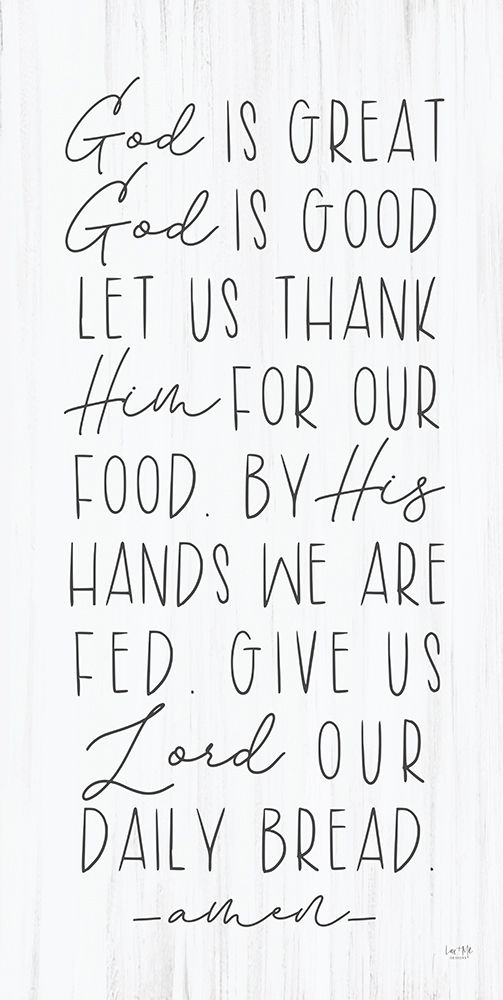 God IS GREAT
God IS GOOD
LET US THANK
Him FOR OUR
FOOD. BY His
HANDS WE ARE
FED. GIVE US
Lord OUR
DAILY BREAD.
–amen–
Lux + Me
DESIGNS